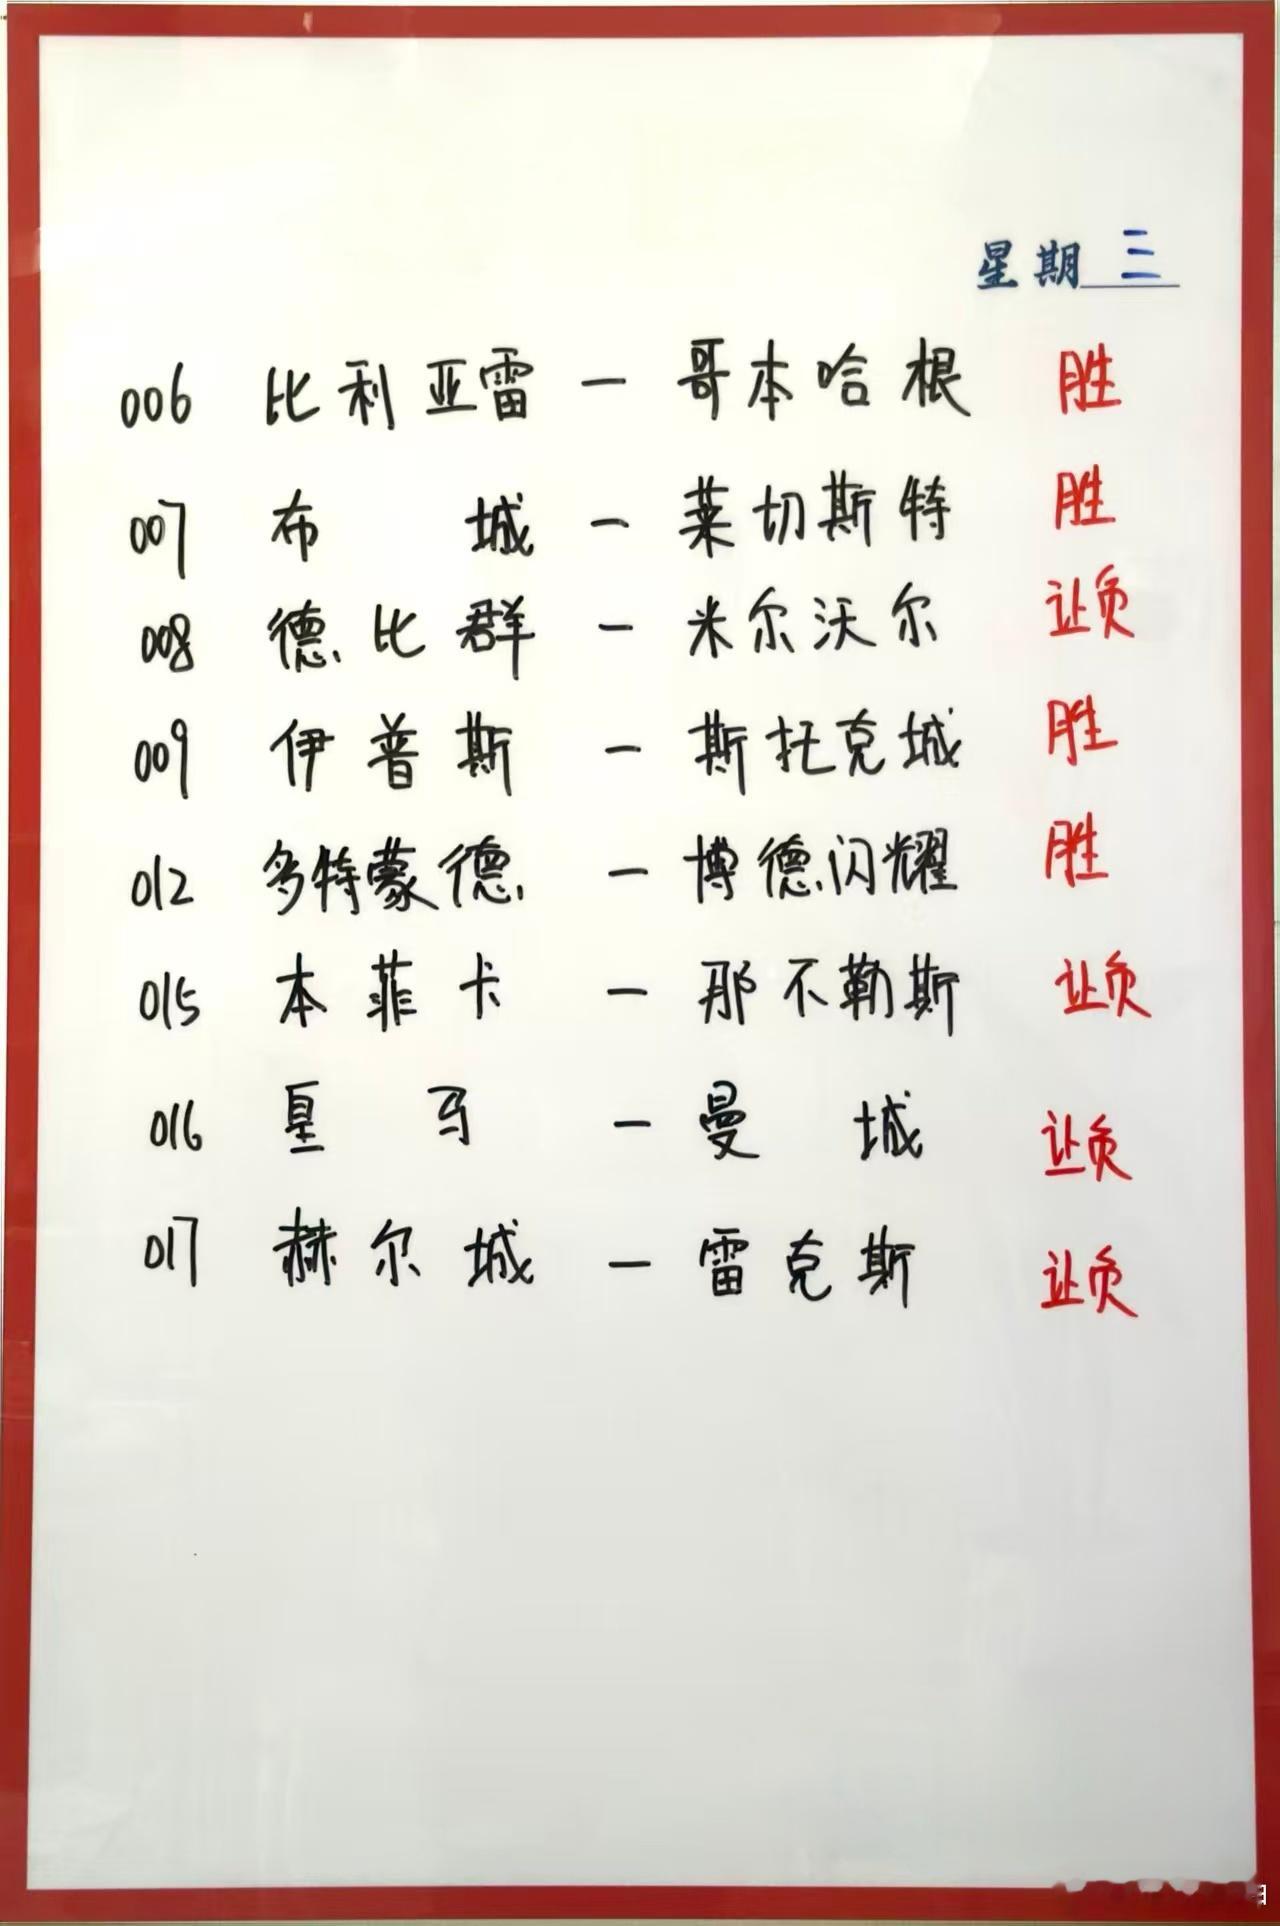 星期三
006 比利亚雷 — 哥本哈根 胜
007 布城 — 莱切斯特 胜
008 德比群 — 米尔沃尔 让负
009 伊普斯 — 斯托克城 胜
012 多特蒙德 — 博德闪耀 胜
015 本菲卡 — 那不勒斯 让负
016 皇马 — 曼城 让负
017 赫尔城 — 雷克斯 让负